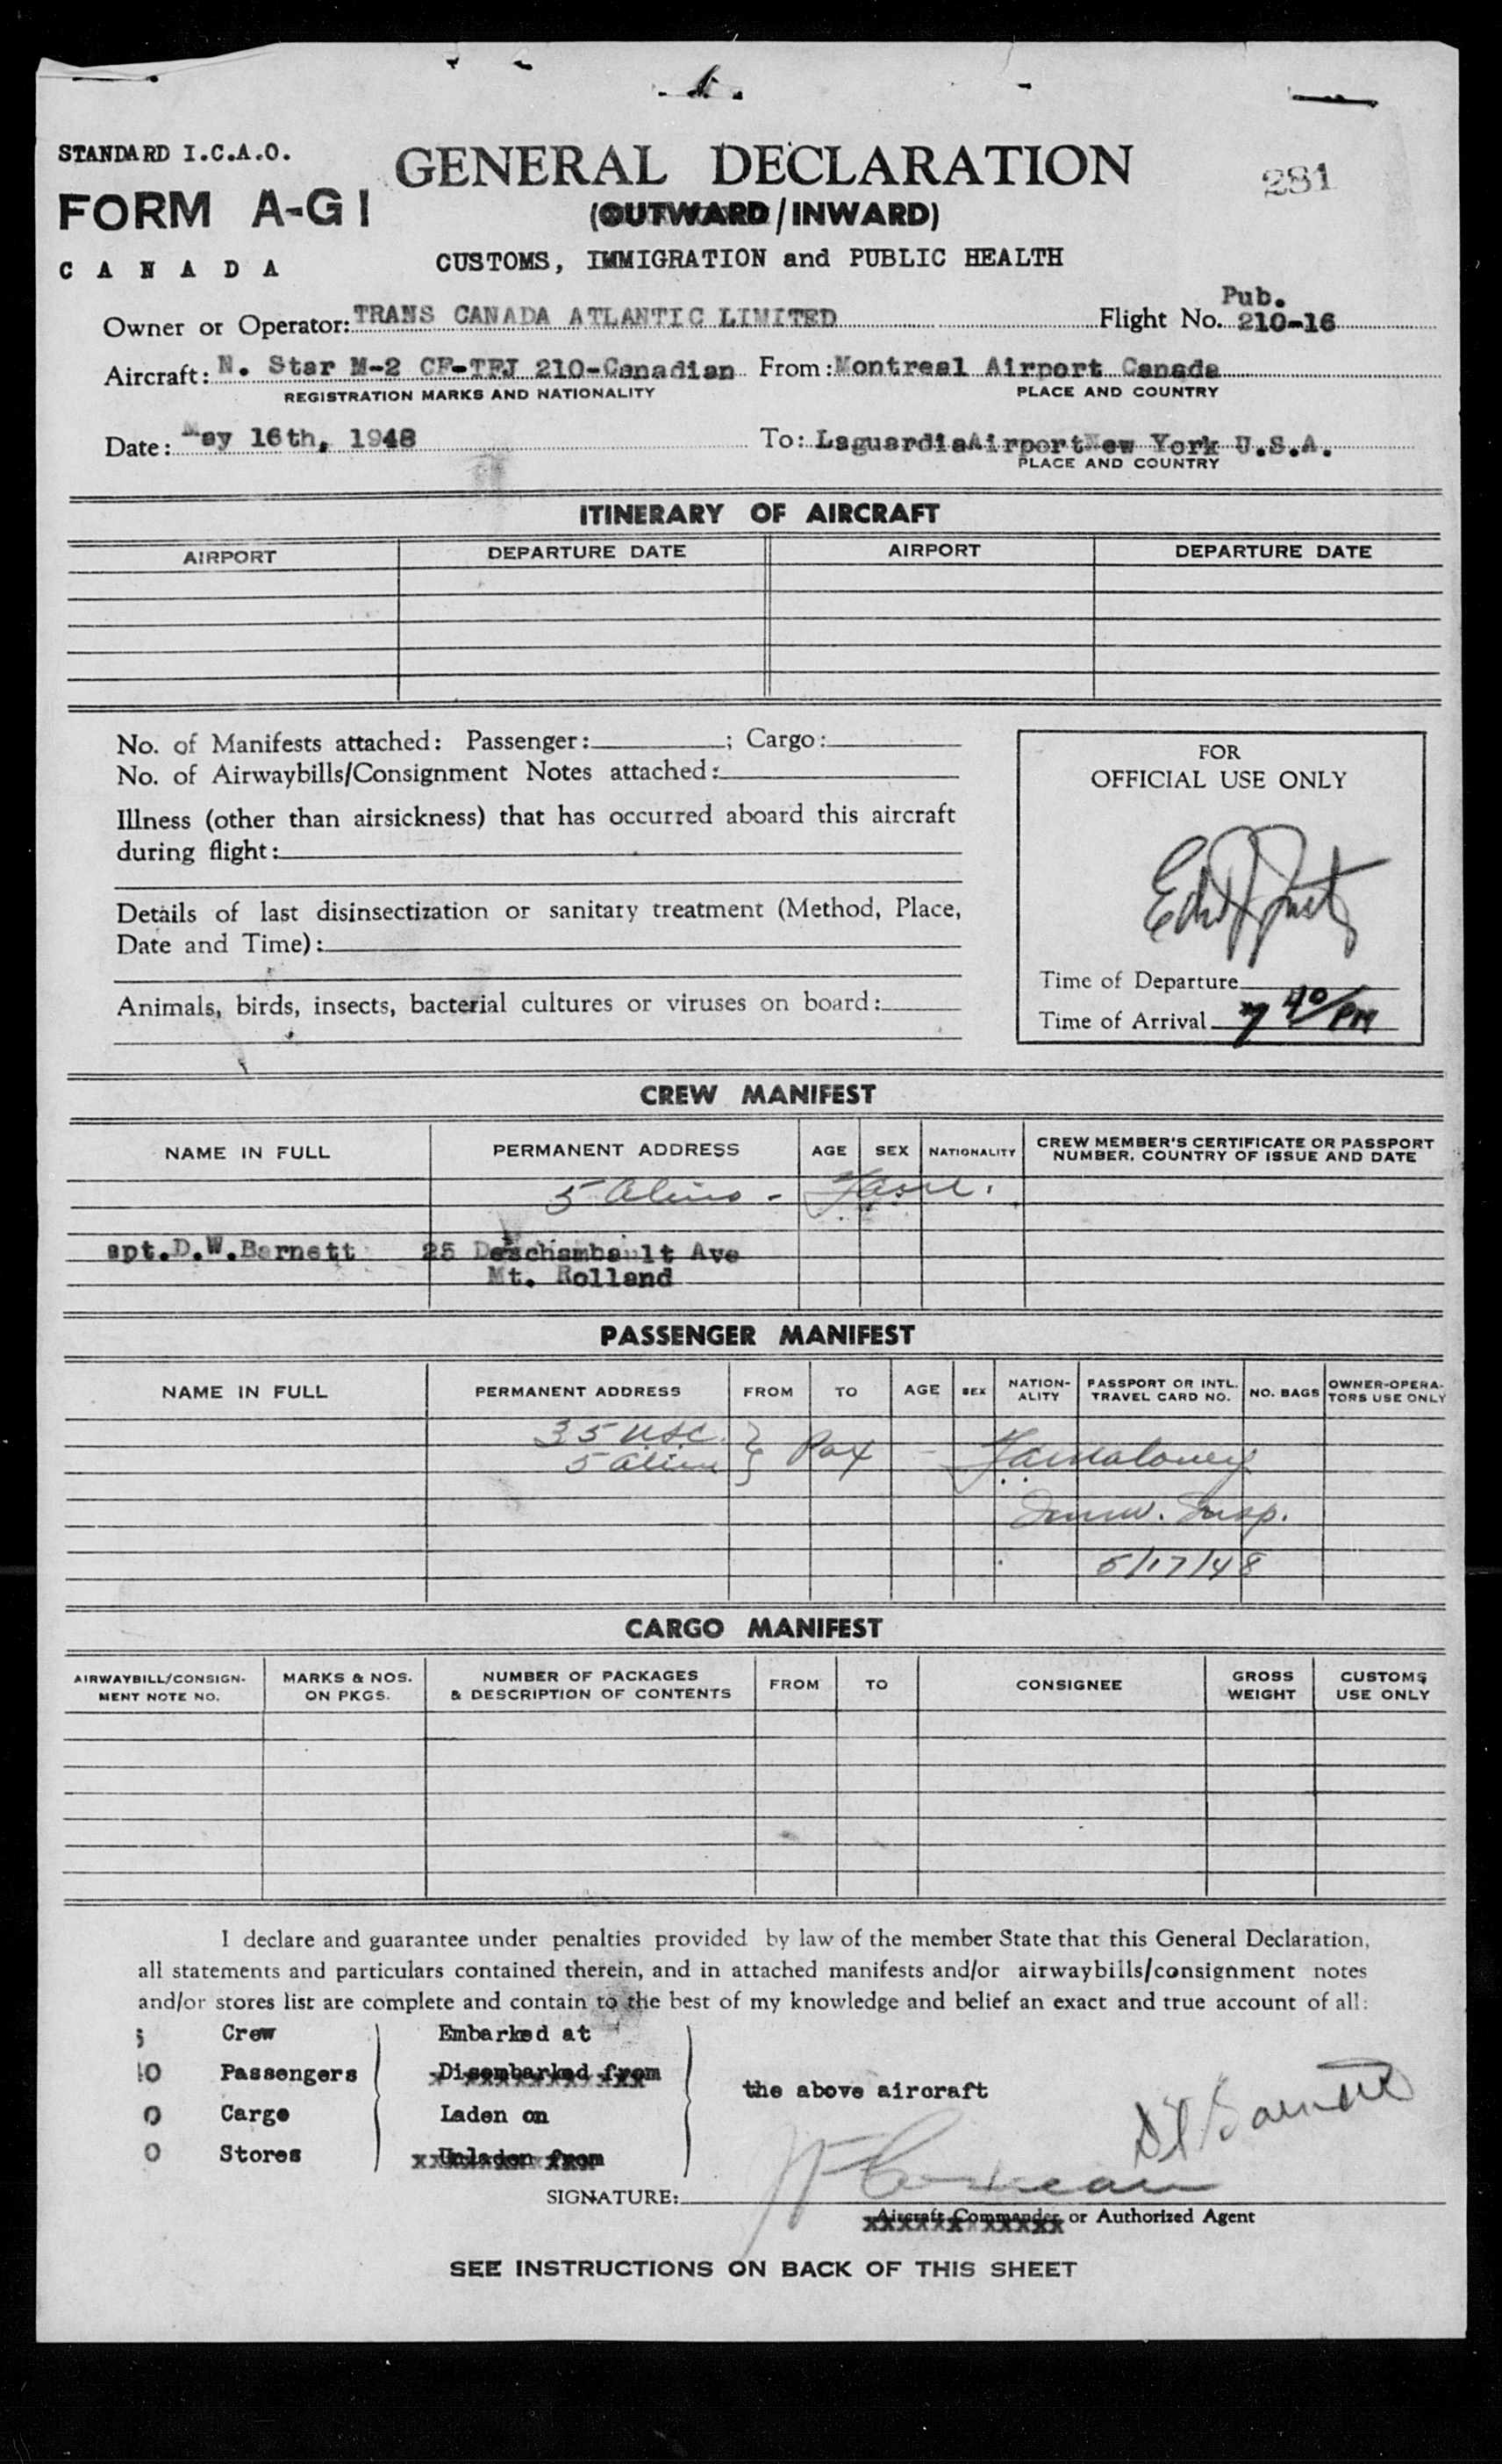 STANDARD I.C.A.O.
GENERAL DECLARATION
281
FORM A-G1
(OUTWARD/INWARD)
CANADA
CUSTOMS, IMMIGRATION and PUBLIC HEALTH
Pub.
Owner or Operator: TRANS CANADA ATLANTIC LIMITED Flight No. 210-16
Aircraft: N. Star M-2 CF-TFJ 210-Canadian From: Montreal Airport Canada
REGISTRATION MARKS AND NATIONALITY PLACE AND COUNTRY
Date: May 16th, 1948 To: LaguardiaAirportNew York U.S.A.
PLACE AND COUNTRY
ITINERARY OF AIRCRAFT
AIRPORT DEPARTURE DATE AIRPORT DEPARTURE DATE
No. of Manifests attached: Passenger: ; Cargo:
No. of Airwaybills/Consignment Notes attached:
Illness (other than airsickness) that has occurred aboard this aircraft
during flight:
Details of last disinsectization or sanitary treatment (Method, Place,
Date and Time):
Animals, birds, insects, bacterial cultures or viruses on board:
FOR
OFFICIAL USE ONLY
Time of Departure
Time of Arrival 7 40/PM
CREW MANIFEST
NAME IN FULL PERMANENT ADDRESS AGE SEX NATIONALITY CREW MEMBER'S CERTIFICATE OR PASSPORT
NUMBER, COUNTRY OF ISSUE AND DATE
5 aliens -
apt.D.W.Barnett 25 Deschambault Ave
Mt. Rolland
PASSENGER MANIFEST
NAME IN FULL PERMANENT ADDRESS FROM TO AGE SEX NATION-
ALITY PASSPORT OR INTL.
TRAVEL CARD NO. NO. BAGS OWNER-OPERA-
TORS USE ONLY
35 USC. } Pax -
5 aliens
Immw. Insp.
5/17/48
CARGO MANIFEST
AIRWAYBILL/CONSIGN-
MENT NOTE NO. MARKS & NOS.
ON PKGS. NUMBER OF PACKAGES
& DESCRIPTION OF CONTENTS FROM TO CONSIGNEE GROSS
WEIGHT CUSTOMS
USE ONLY
I declare and guarantee under penalties provided by law of the member State that this General Declaration,
all statements and particulars contained therein, and in attached manifests and/or airwaybills/consignment notes
and/or stores list are complete and contain to the best of my knowledge and belief an exact and true account of all:
5 Crew Embarked at
40 Passengers Disembarked from
the above aircraft
0 Cargo Laden on
0 Stores Unladen from
SIGNATURE:
Aircraft Commander or Authorized Agent
SEE INSTRUCTIONS ON BACK OF THIS SHEET